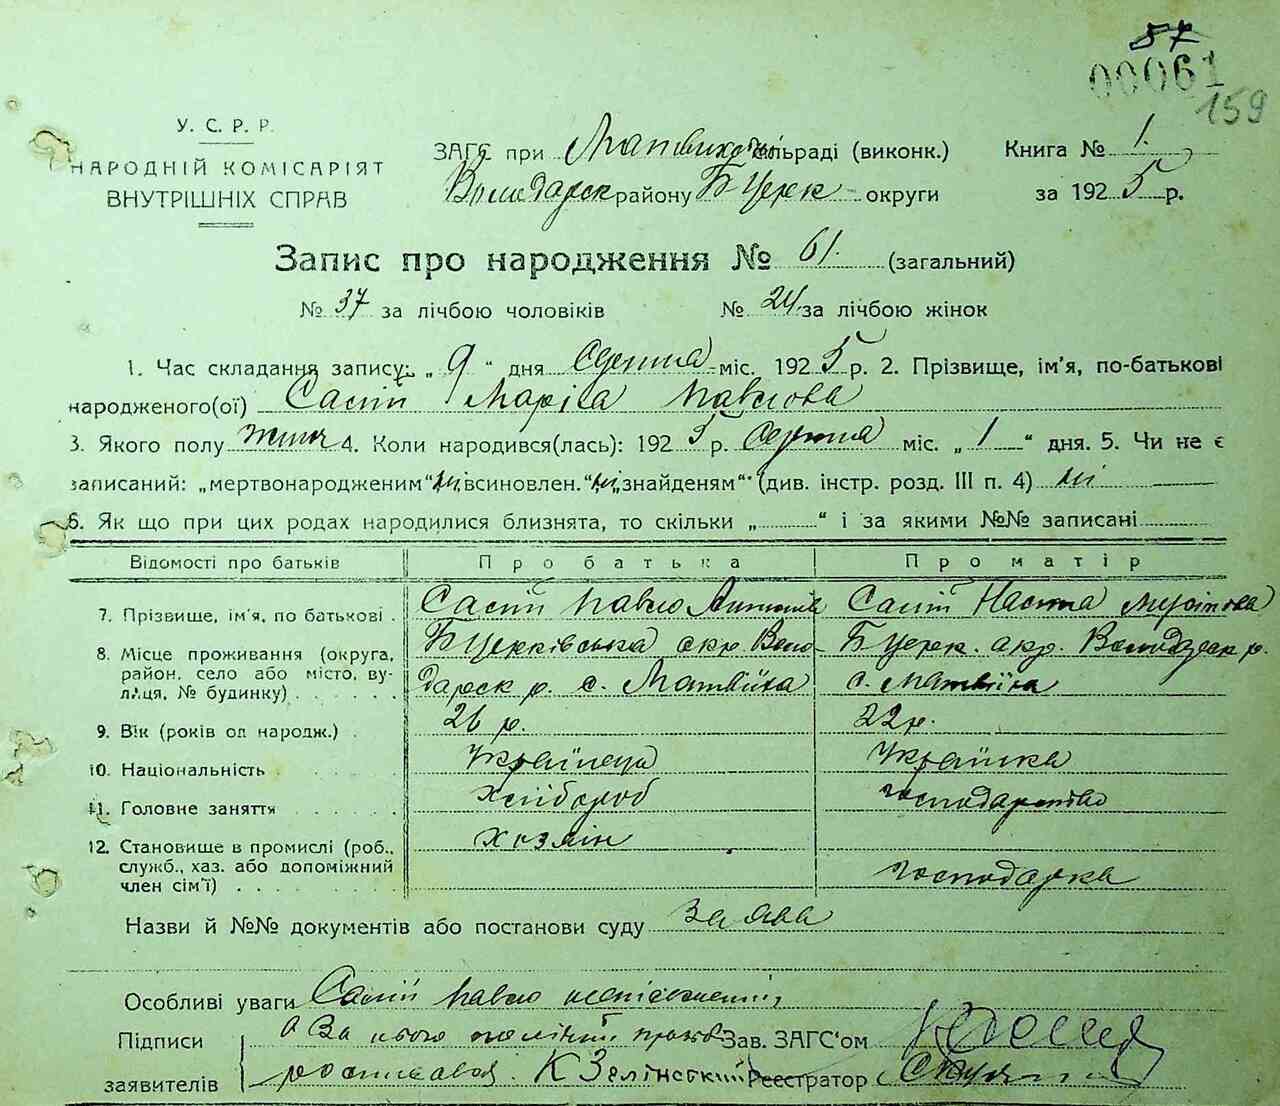 87
00061
159
У. С. Р. Р.
НАРОДНІЙ КОМІСАРІЯТ
ВНУТРІШНІХ СПРАВ
ЗАГС при сільраді (виконк.) Книга № 1.
Володарск району Б Церк округи за 1925 р.
Запис про народження № 61. (загальний)
№ 37 за лічбою чоловіків № 24 за лічбою жінок
1. Час складання запису: „ 9 “ дня Серпня міс. 1925 р. 2. Прізвище, ім'я, по-батькові
народженого(ої) Марія Павлова
3. Якого полу жіноч 4. Коли народився(лась): 1925 р. Серпня міс. „ 1 “ дня. 5. Чи не є
записаний: „мертвонародженим“ ні, всиновлен.“ ні, „знайденям“ (див. інстр. розд. III п. 4) ні
6. Як що при цих родах народилися близнята, то скільки „ “ і за якими №№ записані
Відомості про батьків Про батька Про матір
7. Прізвище, ім'я, по батькові . Павло Настя
8. Місце проживання (округа, район, село або місто, вулиця, № будинку) . Б Церкківська окр. Володарск р. с. Матвіїха Б Церк. окр. Володарск р. с. Матвіїха
9. Вік (років од народж.) . 26 р. 22 р.
10. Національність Українець Українка
11. Головне заняття хлібороб господарство
12. Становище в промислі (роб., служб., хаз. або допоміжний член сім'ї) хозяїн господарка
Назви й №№ документів або постанови суду Заява
Особливі уваги Павло неписьменний
Підписи а За нього Зав. ЗАГС'ом
заявителів росписався. К Зелінський Реєстратор